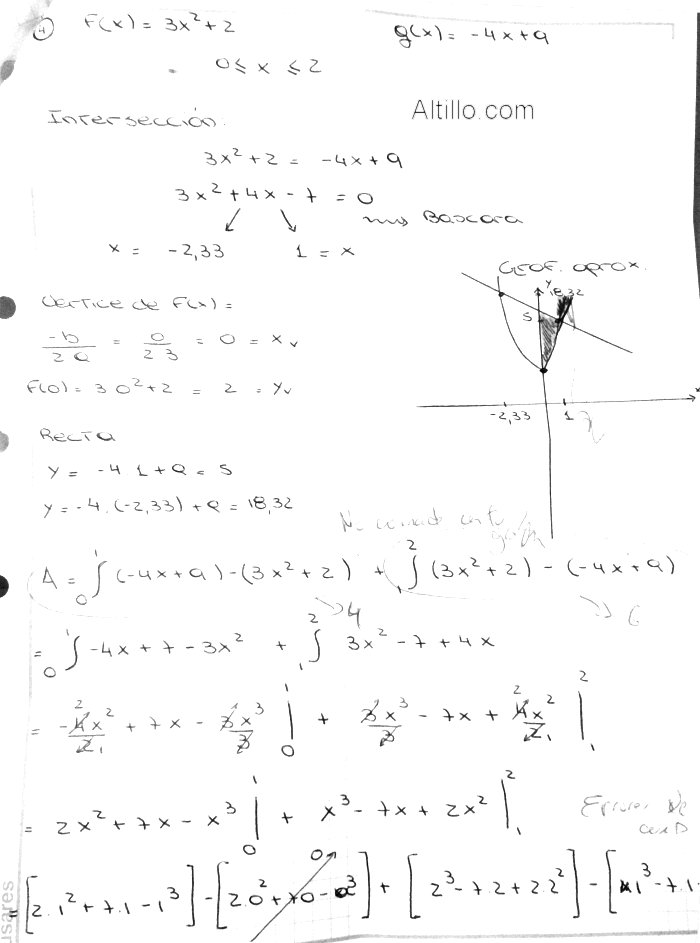 4 F(x) = 3x² + 2 g(x) = -4x + 9
0 ≤ x ≤ 2
Altillo.com
Intersección.
3x² + 2 = -4x + 9
3x² + 4x - 7 = 0
Bascara
x = -2,33 1 = x
Graf. aprox.
y
18,32
5
x
-2,33 1 2
Vertice de F(x) =
-b/2a = 0/2 3 = 0 = xv
F(0) = 3 0² + 2 = 2 = yv
Recta
y = -4 1 + 9 = 5
y = -4 . (-2,33) + 9 = 18,32
A = ∫₀¹ (-4x + 9) - (3x² + 2) + ∫₁² (3x² + 2) - (-4x + 9)
4 6
= ∫₀¹ -4x + 7 - 3x² + ∫₁² 3x² - 7 + 4x
= -4x²/2 + 7x - 3x³/3 |₀¹ + 3x³/3 - 7x + 4x²/2 |₁²
= 2x² + 7x - x³ |₀¹ + x³ - 7x + 2x² |₁²
= [2.1² + 7.1 - 1³] - [2.0² + 7.0 - 0³] + [2³ - 7.2 + 2.2²] - [1³ - 7.1 -
0
usares